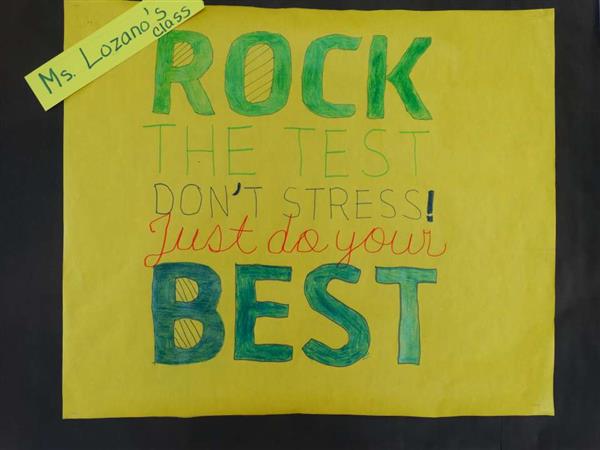 Ms. Lozano's
class
ROCK
THE TEST
DON'T STRESS!
Just do your
BEST